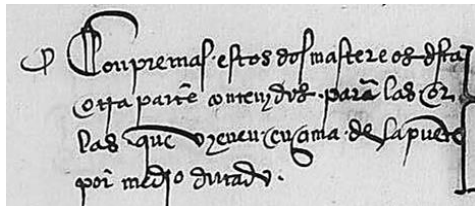 Conpremas · estos dos mastereos dsta
otra parte contenydos · para las
las que vyenen encyma de la puente
por medio